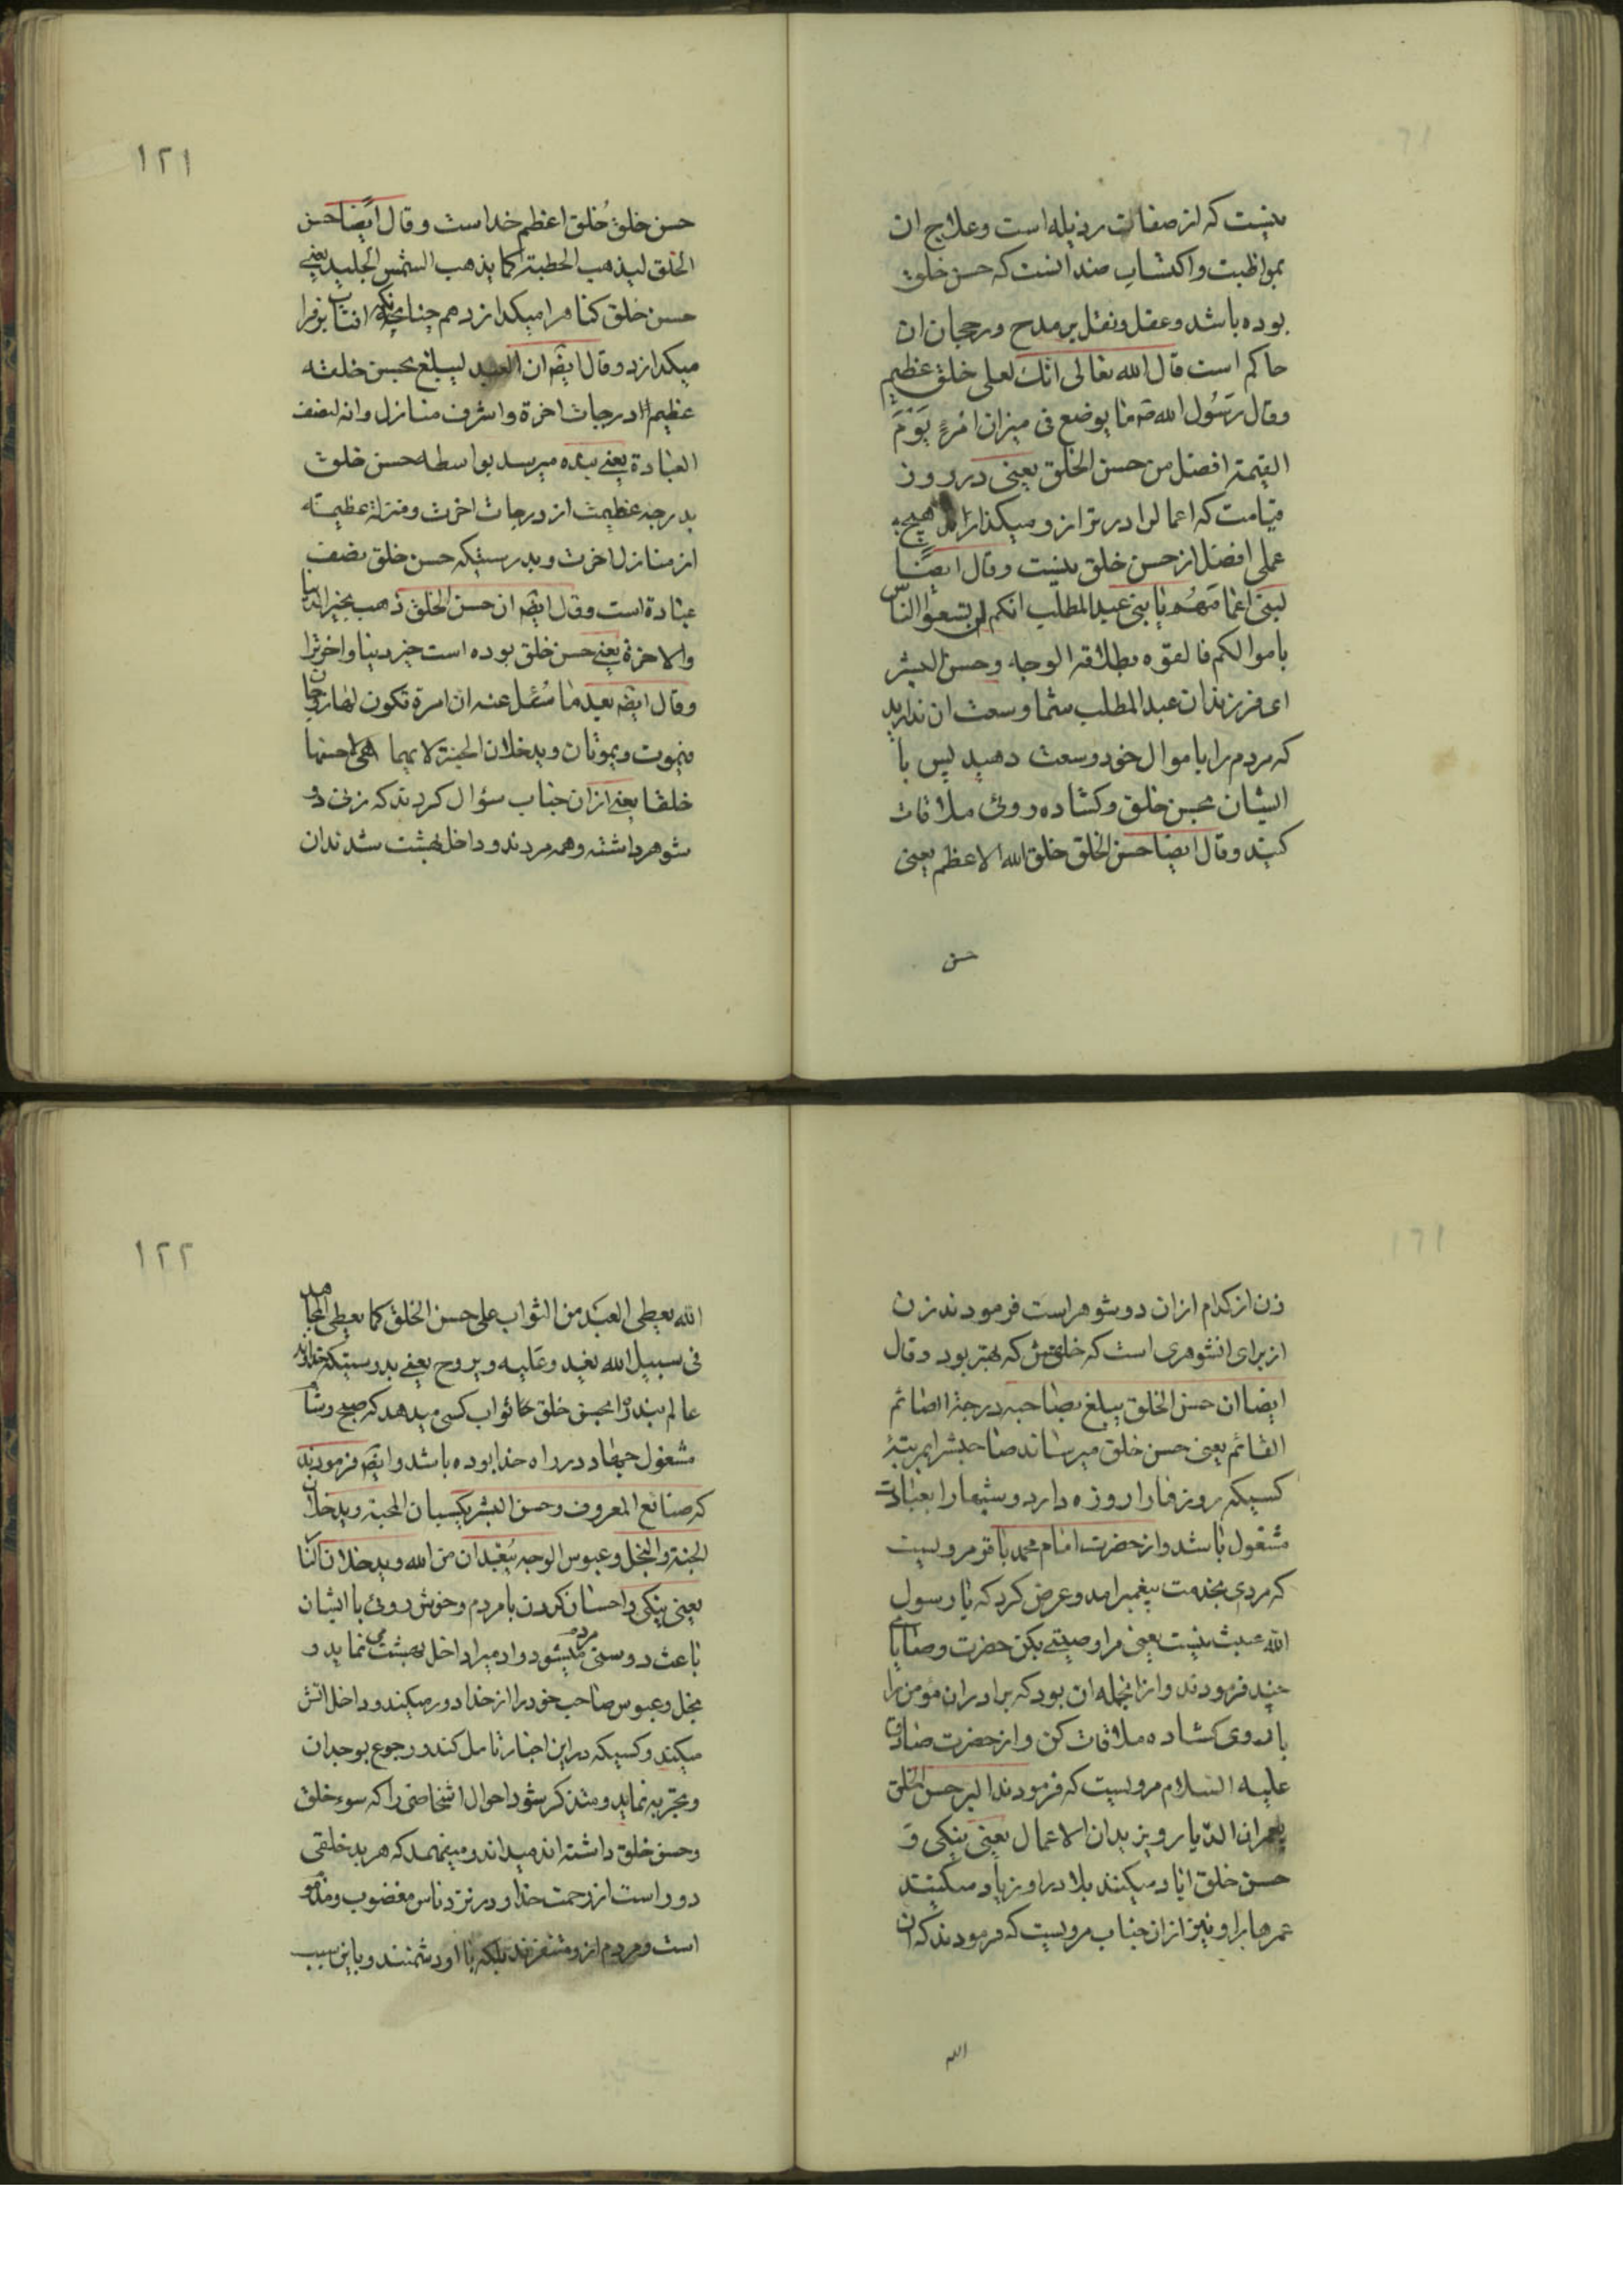 نیست که از صفات رذیله است و علاج ان
بمواظبت و اکتساب ضد انست که حسن خلق
بوده باشد و عقل و نقل بر مدح و رجحان ان
حاکم است قال الله تعالی انّکَ لعلی خلق عظیم
وقال رَسُول الله صَ ما یوضع فی میزان امْرءٍ یَوْمَ
القیمة افضل من حسن الخلق یعنی در روز
قیامت که اعمال را در ترازو میکذارند هیچ
عملی افضل از حسن خلق نیست و قال ایضًا
لبنی اعمامهُم یا بنی عبد المطلب انکم لن تسعوا الناس
باموالکم فالقوه بطلاقة الوجه و حسن البشر
ای فرزندان عبد المطلب شما وسعت ان ندارید
که مردم را باموال خود وسعت دهید پس با
ایشان بحسن خلق و کشاده روئی ملاقات
کنید و قال ایضا حسن الخلق خلق الله الاعظم یعنی
حسن
۱۲۱
حسن خلق خُلق اعظم خداست و قال ایضًا حسن
الخلق لیذهب الخطیئة کما یذهب الشمس الجلید یعنی
حسن خلق کناهرا میکدازد همچنانکه افتاب برفرا
میکدازد و قال ایضَ ان العبد لیبلغ بحسن خلقه
عظیم درجات اخرة و اشرف منازل و انه لضعف
العبادة یعنی بنده میرسد بواسطه حسن خلق
بدرجه عظیمه از درجات اخرت و منزلة عظیمه
از منازل اخرت و بدرستیکه حسن خلق نصف
عبادة است و قال ایضَ ان حسن الخلق ذهب بخیر الدنیا
والاخرة یعنی حسن خلق بوده است خیر دنیا و اخرترا
وقال ایضَ بعد ما سُئل عنه ان امرة تکون لها زوجان
فیموت و یموتان و یدخلان الجنة لایهما هی احسنها
خلقا یعنی از ان جناب سؤال کردند که زنی دو
شوهر داشته و همه مردند و داخل بهشت شدند ان
زن از کدام از ان دو شوهر است فرمودند زن
از برای انشوهری است که خلقش که بهتر بود و قال
ایضا ان حسن الخلق یبلغ بصاحبه درجة الصائم
القائم یعنی حسن خلق میرساند صاحبشرا بمرتبهٔ
کسیکه روزها را روزه دارد و شبها را بعبادت
مشغول باشد و از حضرت امام محمد باقر مرویست
که مردی بخدمت پیغمبر امد و عرض کرد که یا رسول
الله یعنی مرا وصیتے بکن حضرت وصایای
چند فرمودند و از انجمله ان بود که برادران مؤمن را
با روی کشاده ملاقات کن و از حضرت صادق
علیه السلام مرویست که فرمودند البر حسن الخلق
یعمران الدّیار و یزیدان الاعمال یعنی نیکی و
حسن خلق اباد میکنند بلاد را و زیاد میکنند
عمرها را و نیز از ان جناب مرویست که فرمودند که ان
الله
۱۲۲
الله یعطی العبَد من الثواب علی حسن الخلق کما یعطی المجاهد
فی سبیل الله یغید و عَلیه و یروح یعنی بدرستیکه خداوند
عالم بندرا بحسن خلق ثواب کسی میدهد که صبح و شام
مشغول جهاد در راه خدا بوده باشد و ایضَ فرمودند
که صنائع المعروف و حسن البشر یکسبان المحبة و یدخلان
الجنة و البخل و عبوس الوجه یُبعّدان من الله و یدخلان النّا
یعنی نیکی و احسان کردن با مردم و خوش روئی با ایشان
باعث دوستی مردم میشود و ادمیرا داخل بهشت می نماید و
بخل و عبوس صاحب خود را از خدا دور میکند و داخل اتش
میکند و کسیکه در این اخبار تامل کند و رجوع بوجدان
و تجربه نماید و متذکر شود احوال اشخاصی را که سوء خلق
و حسن خلق داشته اند میداند و میفهمد که هر بد خلقی
دور است از رحمت خدا و در نزد ناس مغضوب و مذموم
است و مردم از او متنفرند بلکه با او دشمنند و باین سبب